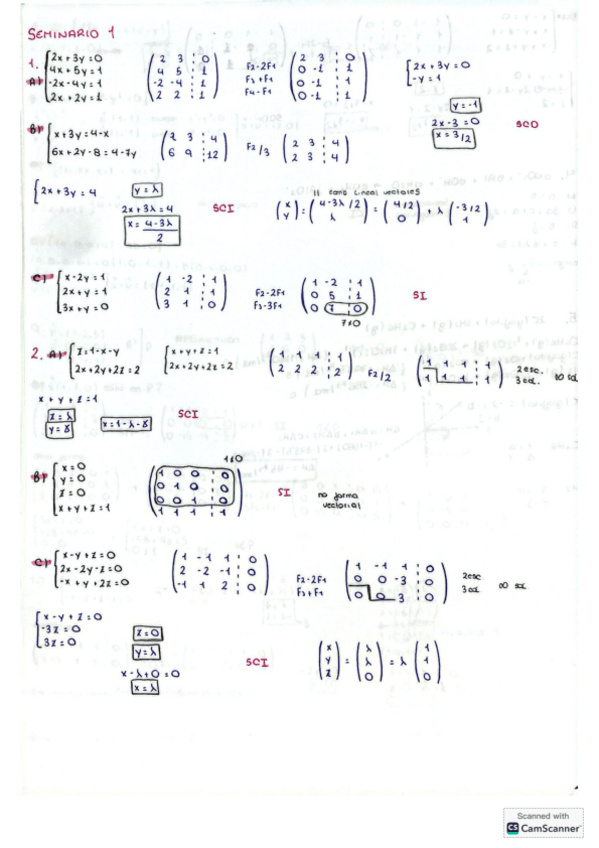 SEMINARIO 1
1. A) { 2x + 3y = 0
4x + 5y = 1
-2x - 4y = 1
2x + 2y = 1
( 2 3 ¦ 0
4 5 ¦ 1
-2 -4 ¦ 1
2 2 ¦ 1 )
F2-2F1
F3+F1
F4-F1
( 2 3 ¦ 0
0 -1 ¦ 1
0 -1 ¦ 1
0 -1 ¦ 1 )
{ 2x + 3y = 0
-y = 1
y = -1
2x - 3 = 0
x = 3/2
SCD
B) { x + 3y = 4 - x
6x + 2y - 8 = 4 - 7y
( 2 3 ¦ 4
6 9 ¦ 12 )
F2/3
( 2 3 ¦ 4
2 3 ¦ 4 )
{ 2x + 3y = 4
y = λ
2x + 3λ = 4
x = 4-3λ / 2
SCI
lineal vectores
( x y ) = ( 4-3λ/2 λ ) = ( 4/2 0 ) + λ ( -3/2 1 )
C) { x - 2y = 1
2x + y = 1
3x + y = 0
( 1 -2 ¦ 1
2 1 ¦ 1
3 1 ¦ 0 )
F2-2F1
F3-3F1
( 1 -2 ¦ 1
0 5 ¦ 1
0 7 ¦ 0 )
7≠0
SI
2. A) { z = 1 - x - y
2x + 2y + 2z = 2
{ x + y + z = 1
2x + 2y + 2z = 2
( 1 1 1 ¦ 1
2 2 2 ¦ 2 )
F2/2
( 1 1 1 ¦ 1
1 1 1 ¦ 1 )
2 esc.
∞ sol
x + y + z = 1
z = λ
y = 8
x = 1 - λ - 8
SCI
B) { x = 0
y = 0
z = 0
x + y + z = 1
1≠0
( 1 0 0 ¦ 0
0 1 0 ¦ 0
0 0 1 ¦ 0
1 1 1 ¦ 1 )
SI
no forma
vectorial
C) { x - y + z = 0
2x - 2y - z = 0
-x + y + 2z = 0
( 1 -1 1 ¦ 0
2 -2 -1 ¦ 0
-1 1 2 ¦ 0 )
F2-2F1
F3+F1
( 1 -1 1 ¦ 0
0 0 -3 ¦ 0
0 0 3 ¦ 0 )
2esc
∞ sol
{ x - y + z = 0
-3z = 0
3z = 0
z = 0
y = λ
x - λ + 0 = 0
x = λ
SCI
( x y z ) = ( λ λ 0 ) = λ ( 1 1 0 )
Scanned with
CS CamScanner